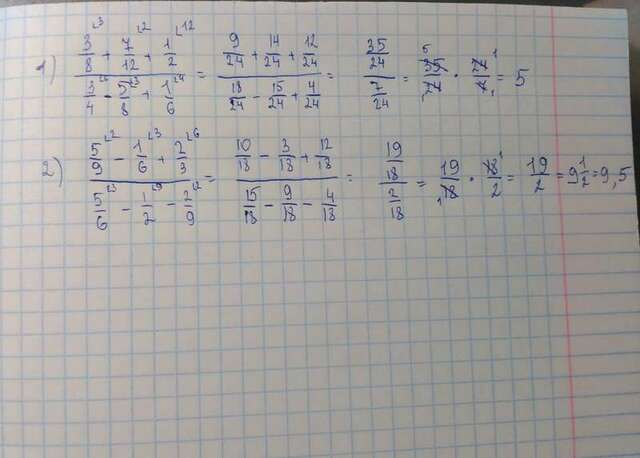 1) (3/8 + 7/12 + 1/2) / (3/4 - 5/8 + 1/6) = (9/24 + 14/24 + 12/24) / (18/24 - 15/24 + 4/24) = (35/24) / (7/24) = 35/24 · 24/7 = 5
2) (5/9 - 1/6 + 2/3) / (5/6 - 1/2 - 2/9) = (10/18 - 3/18 + 12/18) / (15/18 - 9/18 - 4/18) = (19/18) / (2/18) = 19/18 · 18/2 = 19/2 = 9 1/2 = 9,5